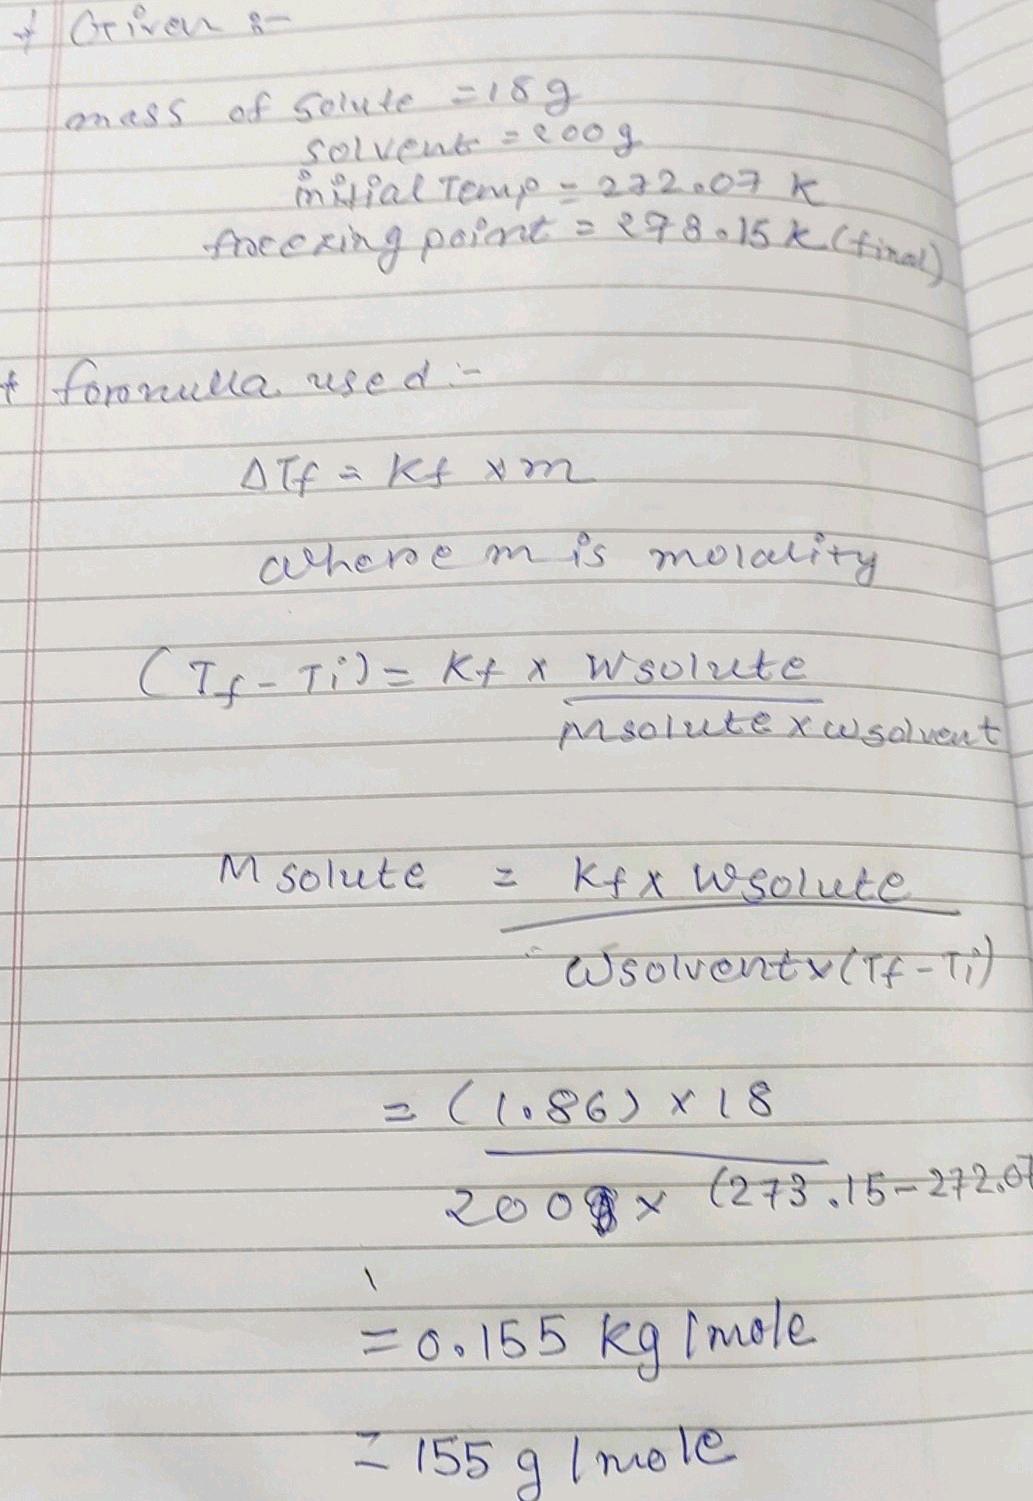 * Given :-
mass of solute = 18g
solvent = 200g
initial Temp = 272.07 K
freezing point = 273.15 K (final)
* formula used :-
ΔTf = Kf x m
where m is molality
(Tf - Ti) = Kf x Wsolute
Msolute x wsolvent
M solute = Kf x Wsolute
Wsolvent x (Tf - Ti)
= (1.86) x 18
200 x (273.15 - 272.07
= 0.155 kg / mole
= 155 g / mole